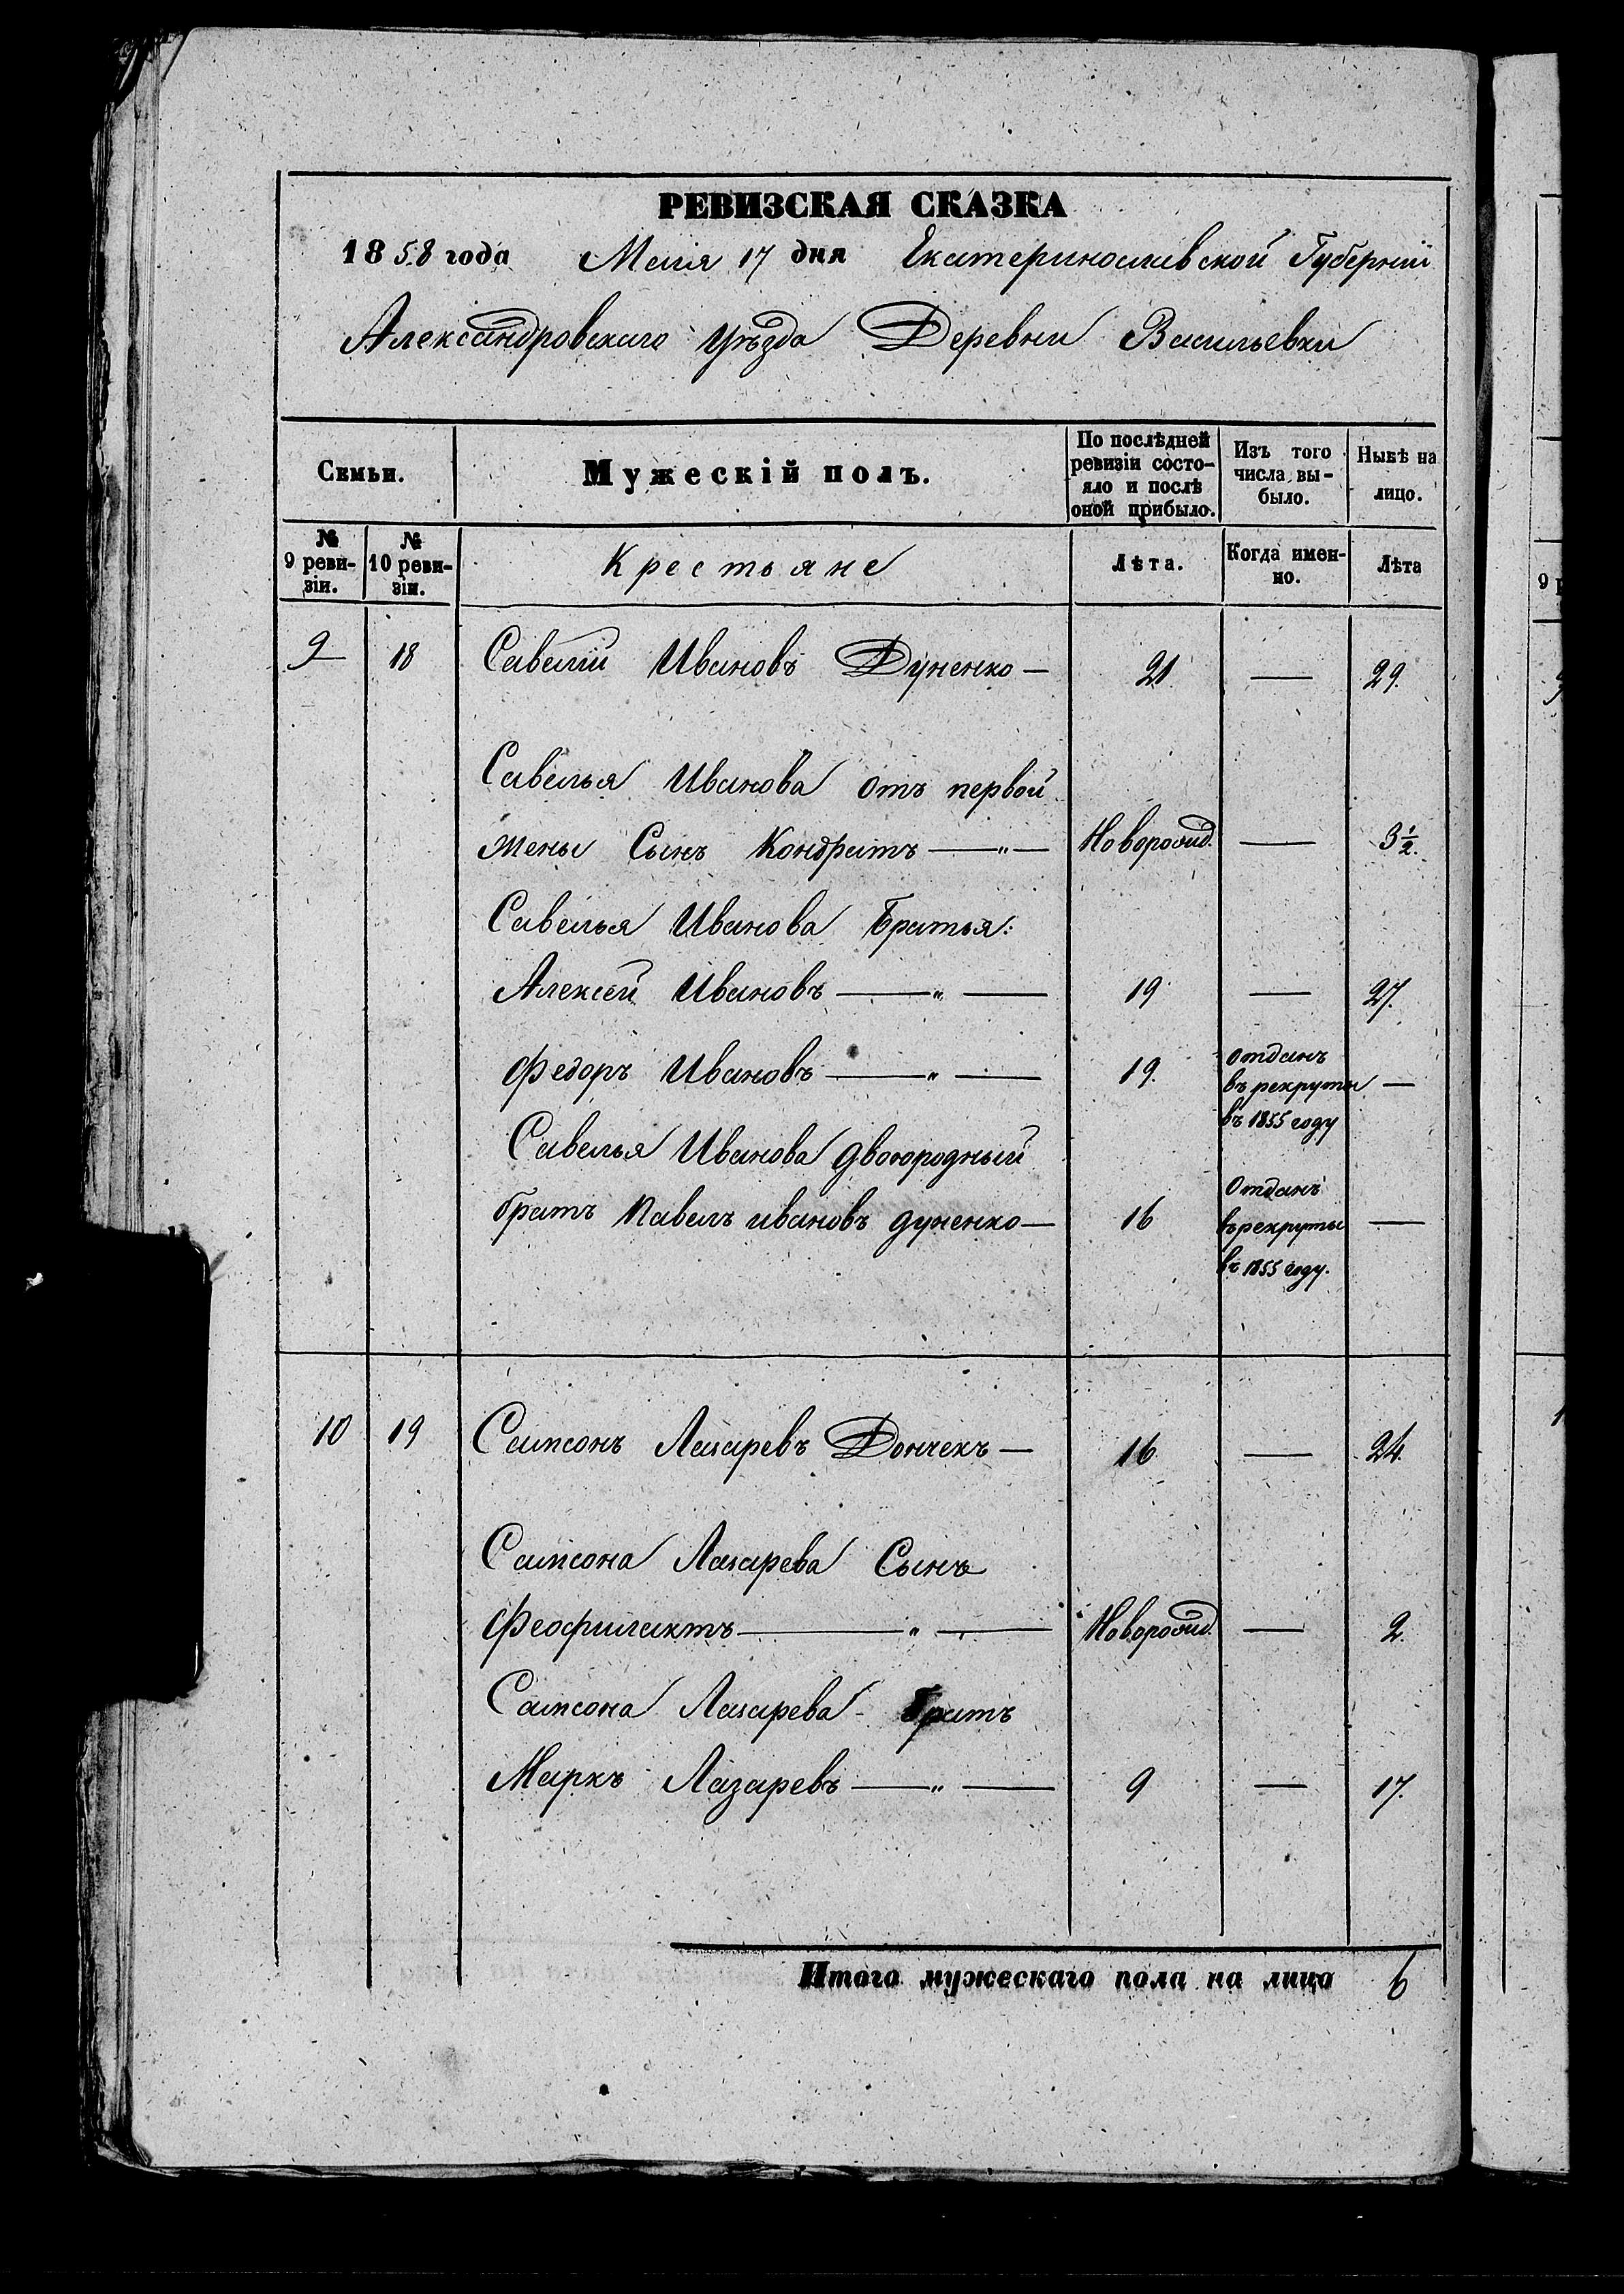 РЕВИЗСКАЯ СКАЗКА
1858 года Маія 17 дня Екатеринославской Губерніи
Александровскаго Уѣзда Деревни Васильевки
Семьи. Мужескій полъ. По послѣдней ревизіи состо-яло и послѣ оной прибыло. Изъ того числа вы-было. Нынѣ на лицо.
№ 9 реви-зіи. № 10 реви-зіи. Крестьяне Лѣта. Когда имен-но. Лѣта
9 18 Савелій Ивановъ Дуненко — 21 — 29.
Савелья Иванова отъ первой
жены Сынъ Кондратъ — „ — Новорожд. — 3 ½.
Савелья Иванова Братья:
Алексей Ивановъ — „ — 19 — 27.
Федоръ Ивановъ — „ — 19. отданъ въ рекруты въ 1855 году —
Савелья Иванова двоюродный
братъ Павелъ ивановъ дуненко — 16 Отданъ въ рекруты въ 1855 году. —
10 19 Самсонъ Лазаревъ Дончекъ — 16 — 24.
Самсона Лазарева Сынъ
Феофилактъ — „ — Новорожд. — 2.
Самсона Лазарева Братъ
Маркъ Лазаревъ — „ — 9 — 17.
Итого мужескаго пола на лицо 6